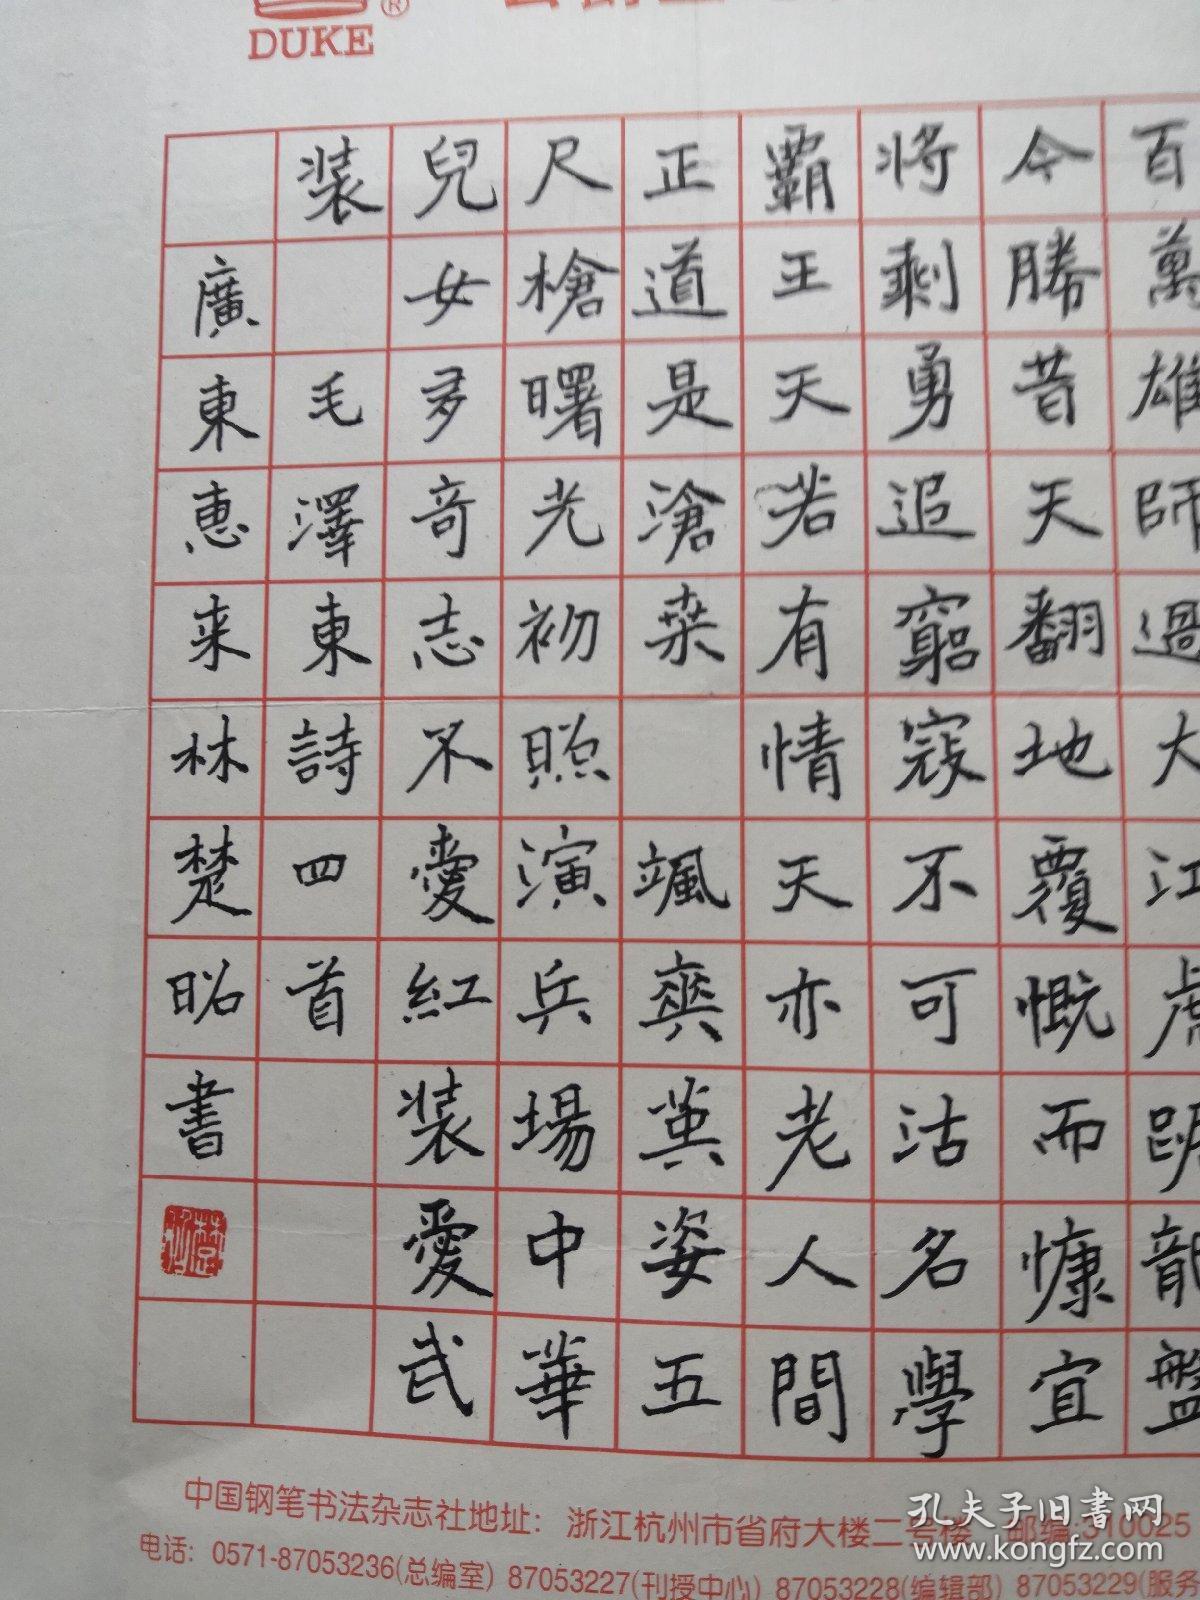 DUKE
百萬雄師過大江虎踞龍盤
今勝昔天翻地覆慨而慷宜
將剩勇追窮寇不可沽名學
霸王天若有情天亦老人間
正道是滄桑 颯爽英姿五
尺槍曙光初照演兵場中華
兒女多奇志不愛紅装愛武
装 毛澤東詩四首
廣東惠来林楚昭書
中国钢笔书法杂志社地址：浙江杭州市省府大楼二号楼 邮编:310025
电话：0571-87053236(总编室) 87053227(刊授中心) 87053228(编辑部) 87053229(服务
孔夫子旧书网
www.kongfz.com